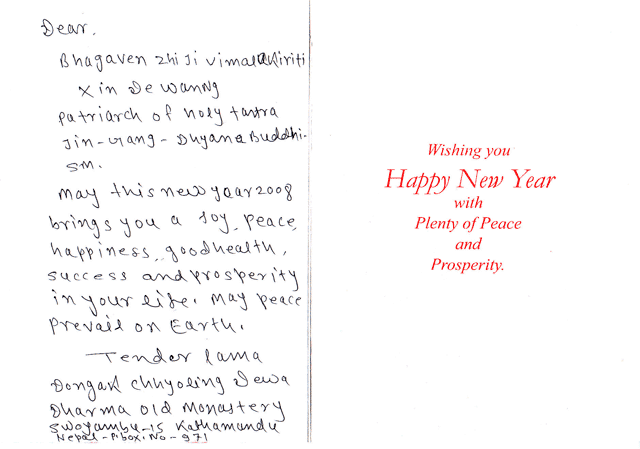 Dear.
Bhagaven zhi Ji vimalakiriti
xin De wanng
patriarch of holy tantra
Jin-Gang-Dhyana Buddhi-
sm.
may this new year 2008
brings you a Joy, peace,
happiness, good health,
success and prosperity
in your life. May peace
prevail on Earth.
Tender lama
Dongak chhyoling Dewa
Dharma old Monastery
Swoyambu-15 Kathamandu
Nepal-P.box.No-971
Wishing you
Happy New Year
with
Plenty of Peace
and
Prosperity.